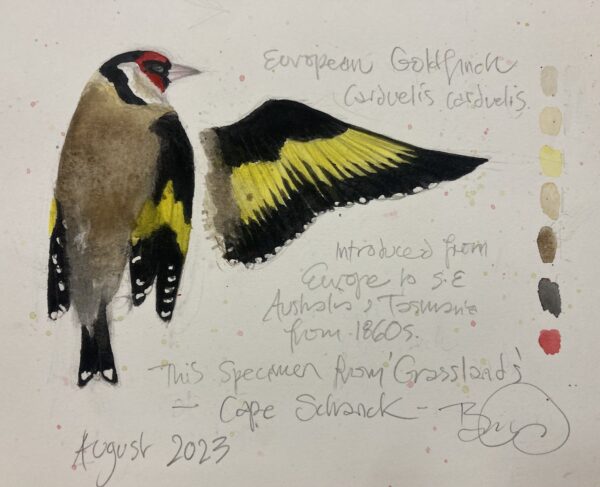 European Goldfinch
Carduelis carduelis.
Introduced from
Europe to S.E
Australia & Tasmania
from 1860s.
This Specimen from 'Grasslands'
- Cape Schanck -
August 2023